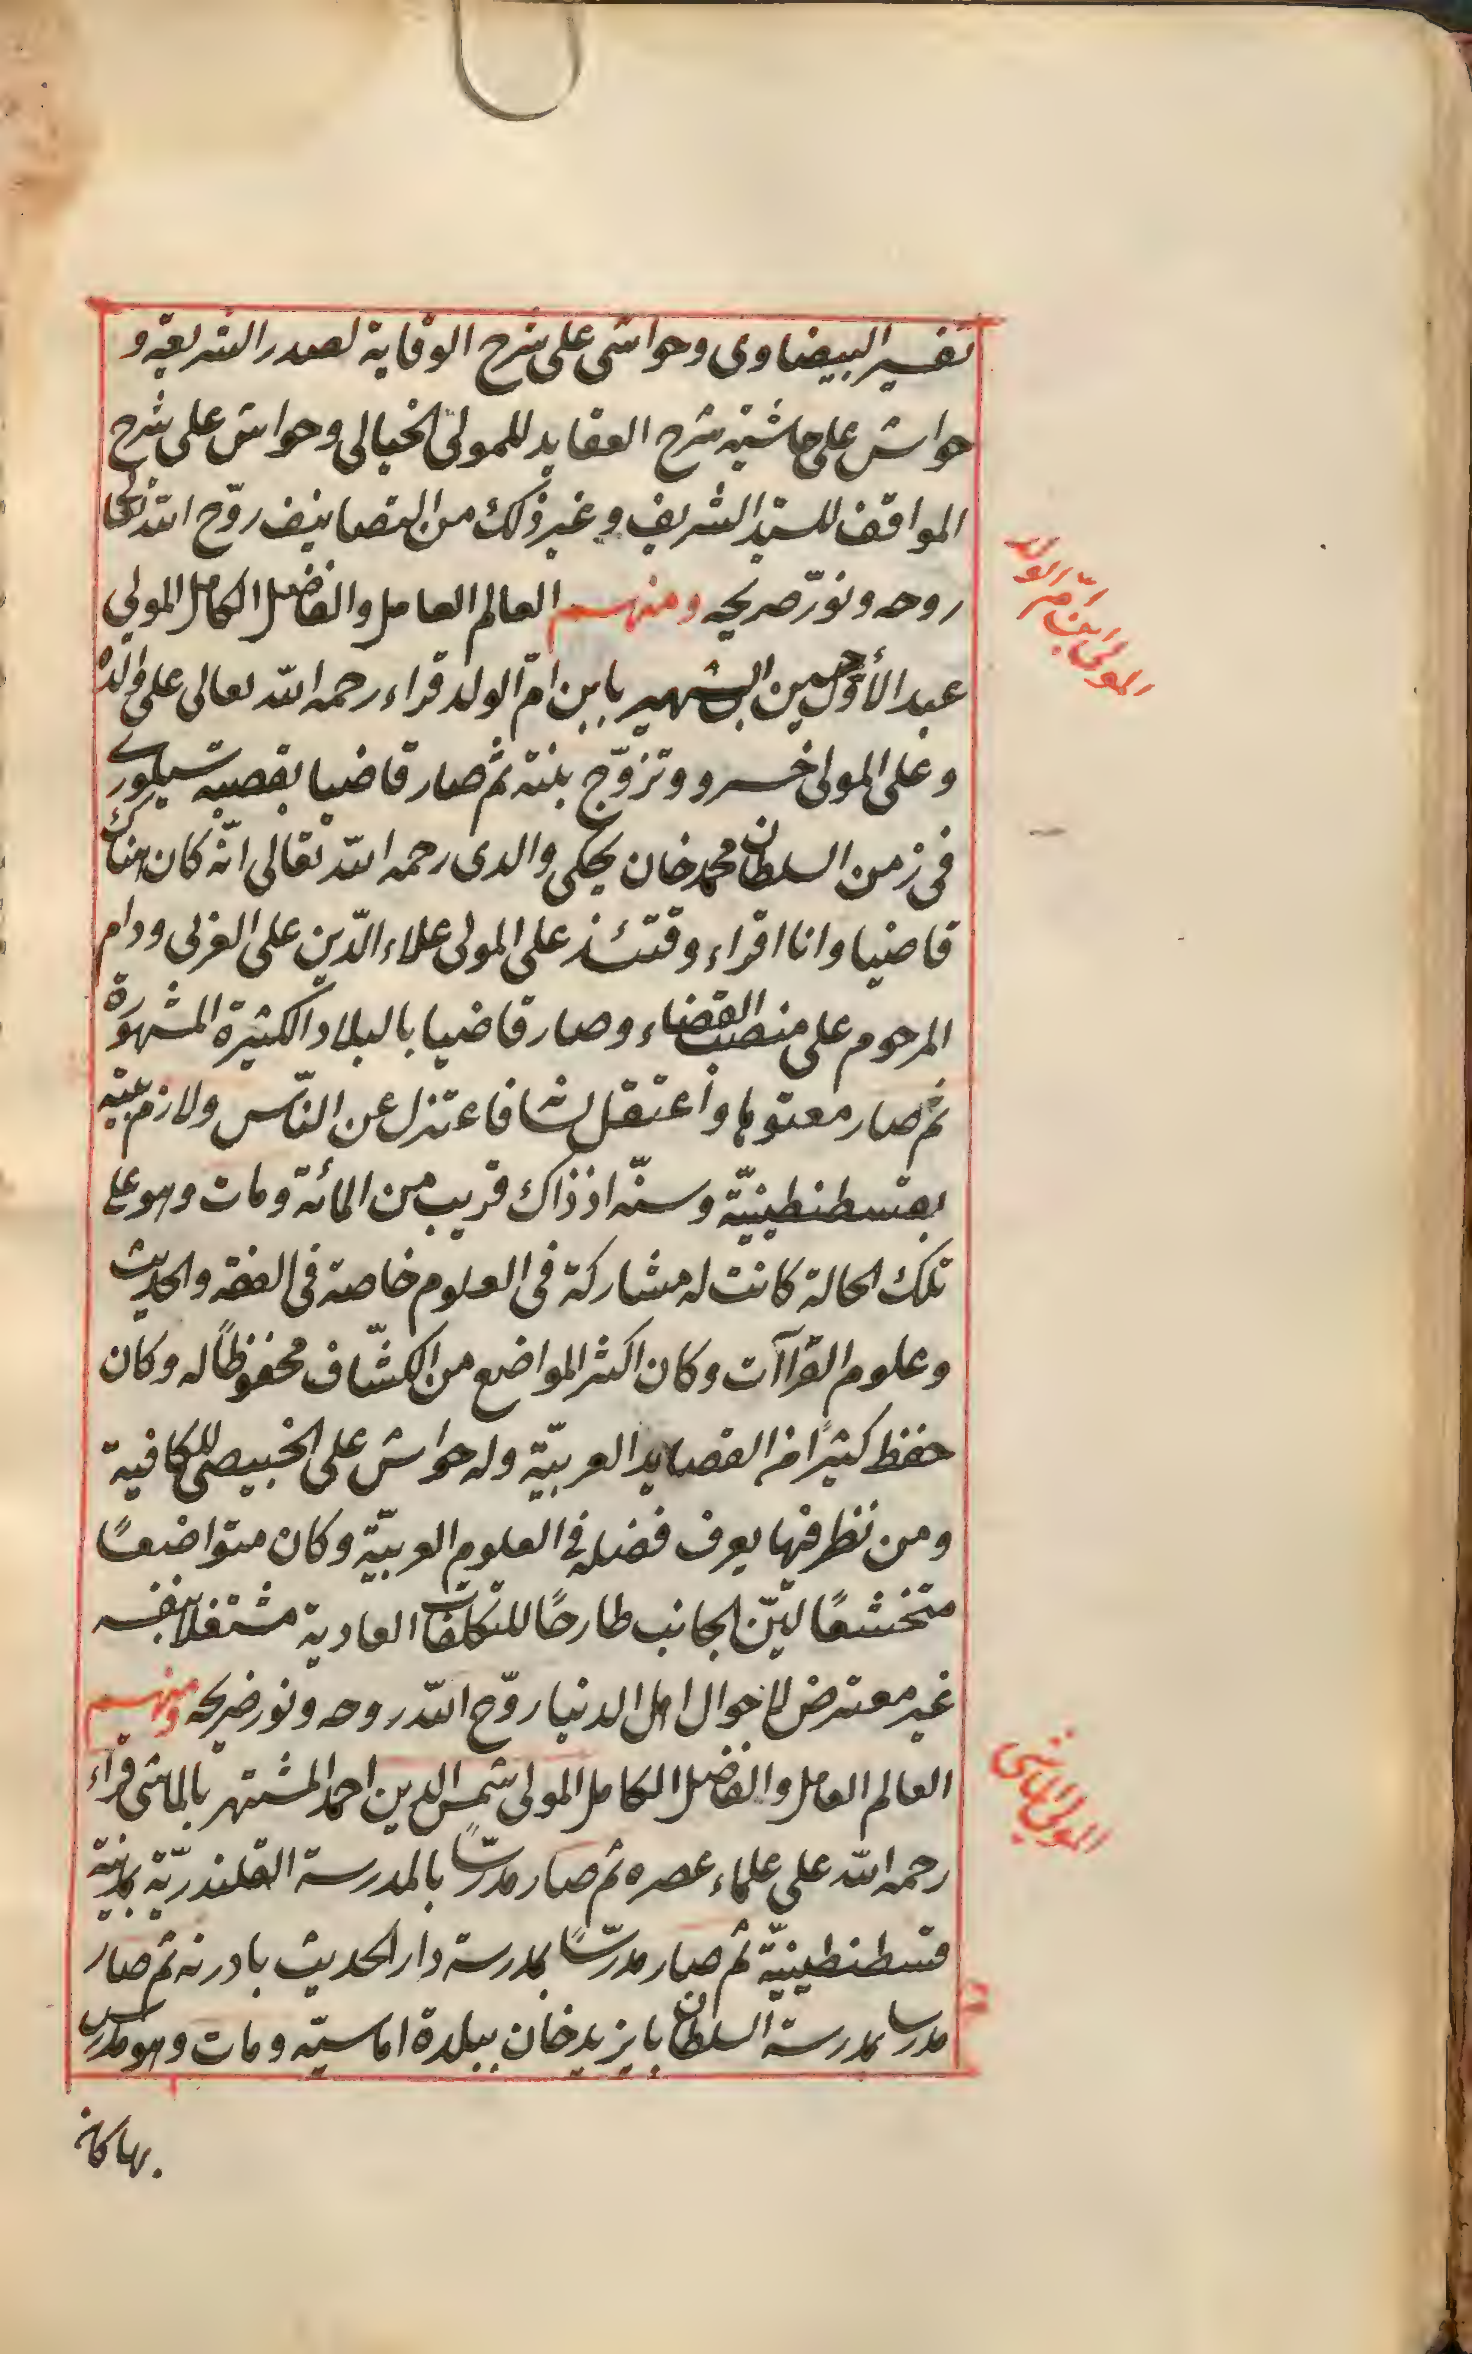 تفسير البيضاوى وحواشى على شرح الوقاية لصدر الشريعة و
حواش على حاشية شرح العقايد للمولى الخيالى وحواش على شرح
المواقف للسيّد الشريف وغير ذلك من التصانيف روّح اللّه تعالى
روحه ونوّر ضريحه ومنهم العالم العامل والفاضل الكامل المولى
المولى ابن امّ الولد
عبد الأوّل بن حسين الشهير بابن امّ الولد قراء رحمه اللّه تعالى على والده
وعلى المولى خسرو وتزوّج بنته ثم صار قاضيا بقصبة سيلورى
فى زمن السلطان محمد خان يحكى والدى رحمه اللّه تعالى انّه كان هناك
قاضيا وانا اقراء وقتئذ على المولى علاء الدّين على العربى ودام
المرحوم على منصب القضاء وصار قاضيا بالبلاد الكثيرة المشهورة
ثم صار معتوها واعتقل لسانه فاعتزل عن النّاس ولازم بيته
بقسطنطينيّة وسنّه اذ ذاك قريب من المائة ومات وهو على
تلك الحالة كانت له مشاركة فى العلوم خاصة فى الفقه والحديث
وعلوم القراآت وكان اكثر المواضع من الكشّاف محفوظًا له وكان
حفظ كثيرًا من القصايد العربيّة وله حواش على الخبيصى للكافية
ومن نظر فيها يعرف فضله فى العلوم العربيّة وكان متواضعًا
متخشعًا ليّن الجانب طارحًا للتكلفات العادية مشتغلا بنفسه
غير معترض لاحوال اهل الدنيا روّح اللّه روحه ونور ضريحه ومنهم
العالم العامل والفاضل الكامل المولى شمس الدين احمد المشتهر بالماشى قراء
المولى الماشى
رحمه اللّه على علماء عصره ثم صار مدرّسًا بالمدرسة القلندريّة بمدينة
قسطنطينيّة ثم صار مدرّسًا بمدرسة دار الحديث بادرنه ثم صار
مدرسا بمدرسة السلطان بايزيد خان ببلدة اماسيّه ومات وهو مدرس
بها كان